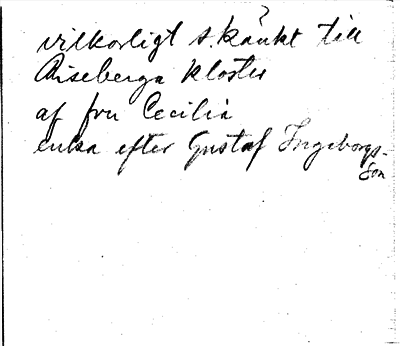 vilkorligt skänkt till
Riseberga kloster
af fru Cecilia
enka efter Gustaf Ingeborgs-
son